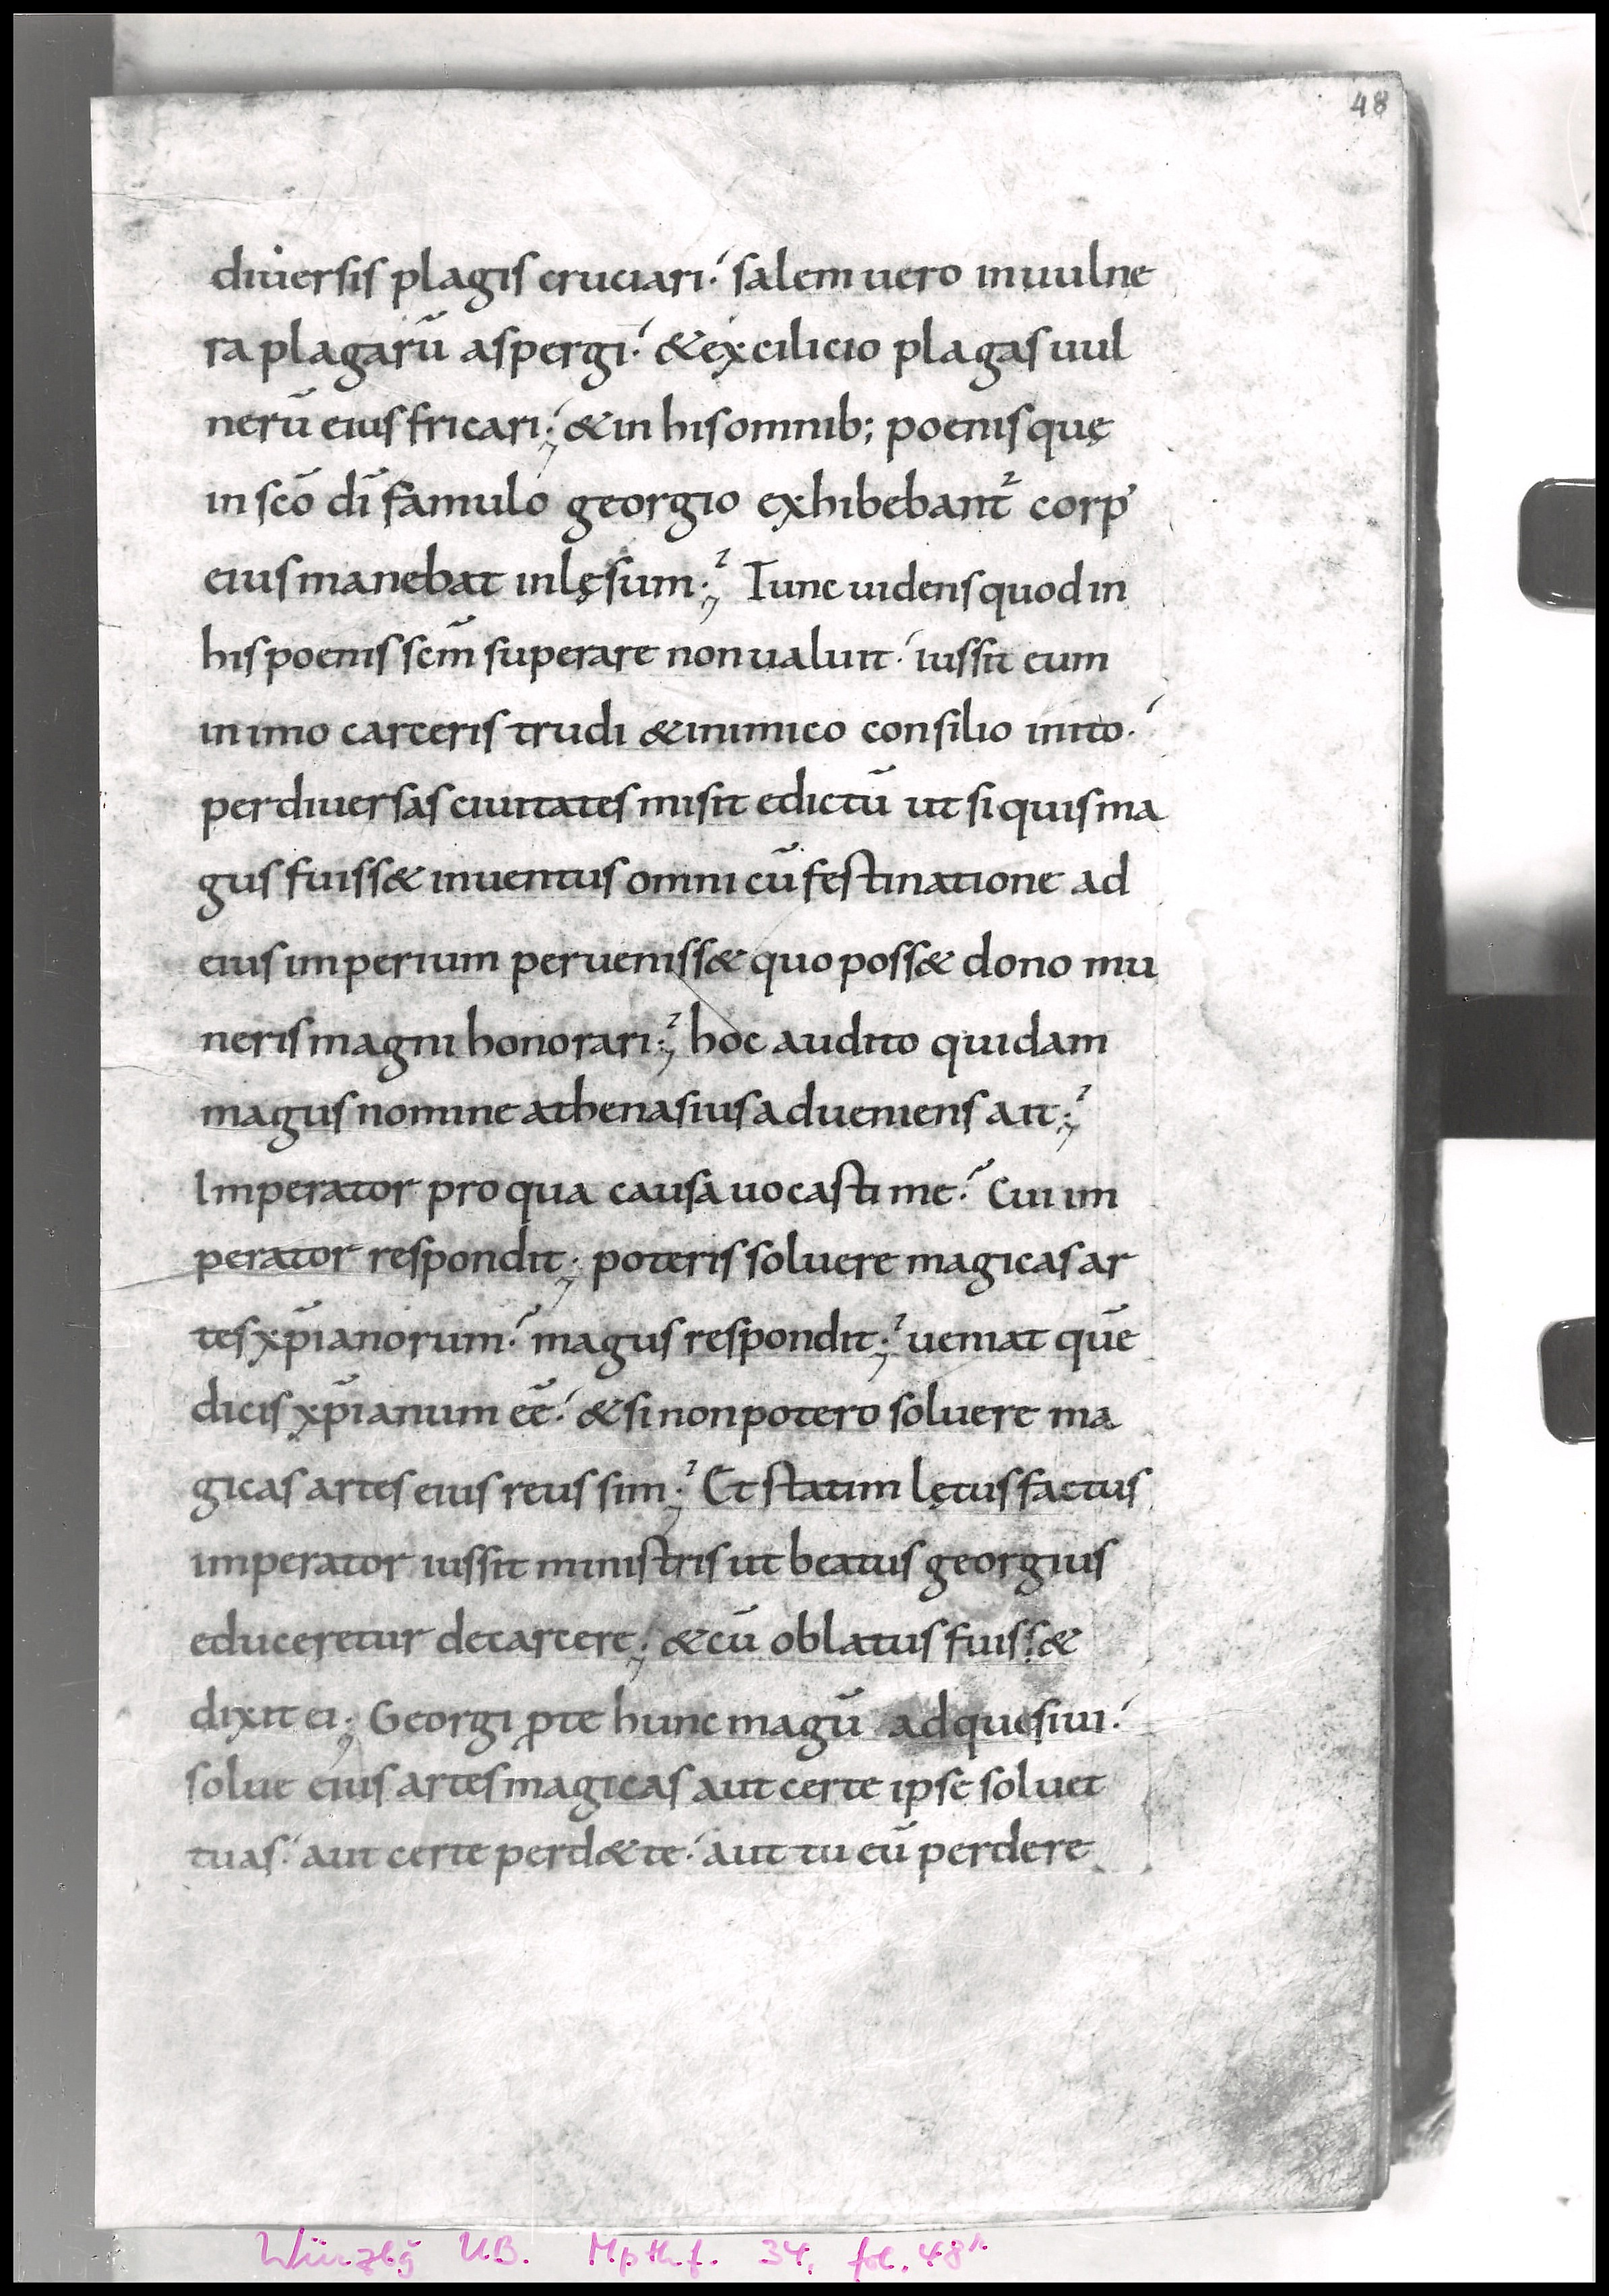 48
diuersis plagis cruciari·́ salem uero inuulne
ra plagarū aspergi·́ & ex cilicio plagas uul
nerū eius fricari·, & in his omnib; poenis quę
in scō dī famulo georgio exhibebant᷑ corp'
eius manebat inlęsum·, Tunc uidens quod in
his poenis scm̄ superare non ualuit·́ iussit eum
in imo carceris trudi & inimico consilio inito·́
per diuersas ciuitates misit edictū ut si quis ma
gus fuiss& inuentus omni cū festinatione ad
eius imperium perueniss& quo poss& dono mu
neris magni honorari·, hoc audito quidam
magus nomine athenasius adueniens ait·,
Imperator pro qua causa uocasti me·̃ Cui im
perator respondit·, poteris soluere magicas ar
tes xp̄ianorum·̃ magus respondit·, ueniat quē
dicis xp̄ianum eē·́ & si non potero soluere ma
gicas artes eius reus sim·, Et statim lętus factus
imperator iussit ministris ut beatus georgius
educeretur de carcere·, & cū oblatus fuiss&
dixit ei·, Georgi ꝓte hunc magū adquesiui·́
solue eius artes magicas aut certe ipse soluet
tuas·́ aut certe perd& te·́ aut tu eū perdere
Würzbg UB. Mp th f. 34, fol. 48r